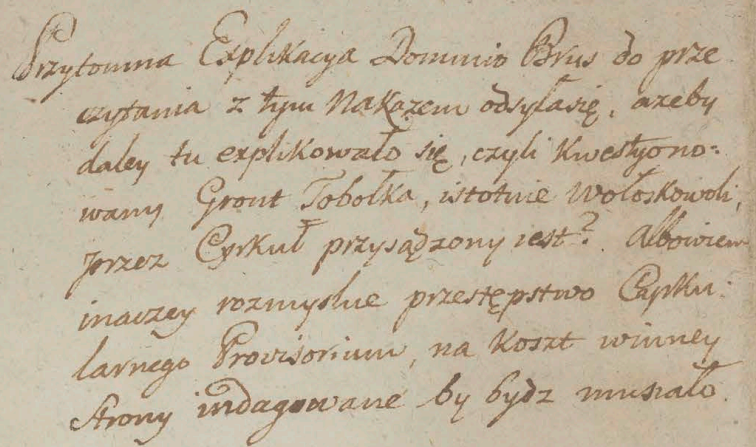 Przytomna Explikacya Dominio Brus do prze
czytania z tym Nakazem odsyła się, azeby
daley tu explikowało się, czyli kwestyono=
wany Gront Tobołka, istotnie Wołoskowoli,
przez Cyrkuł przysądzony iest? Albowiem
inaczey rozmyslne przestępstwo Cyrku:
larnego Provisorium, na koszt winney
strony indagowane by bydz musiało.